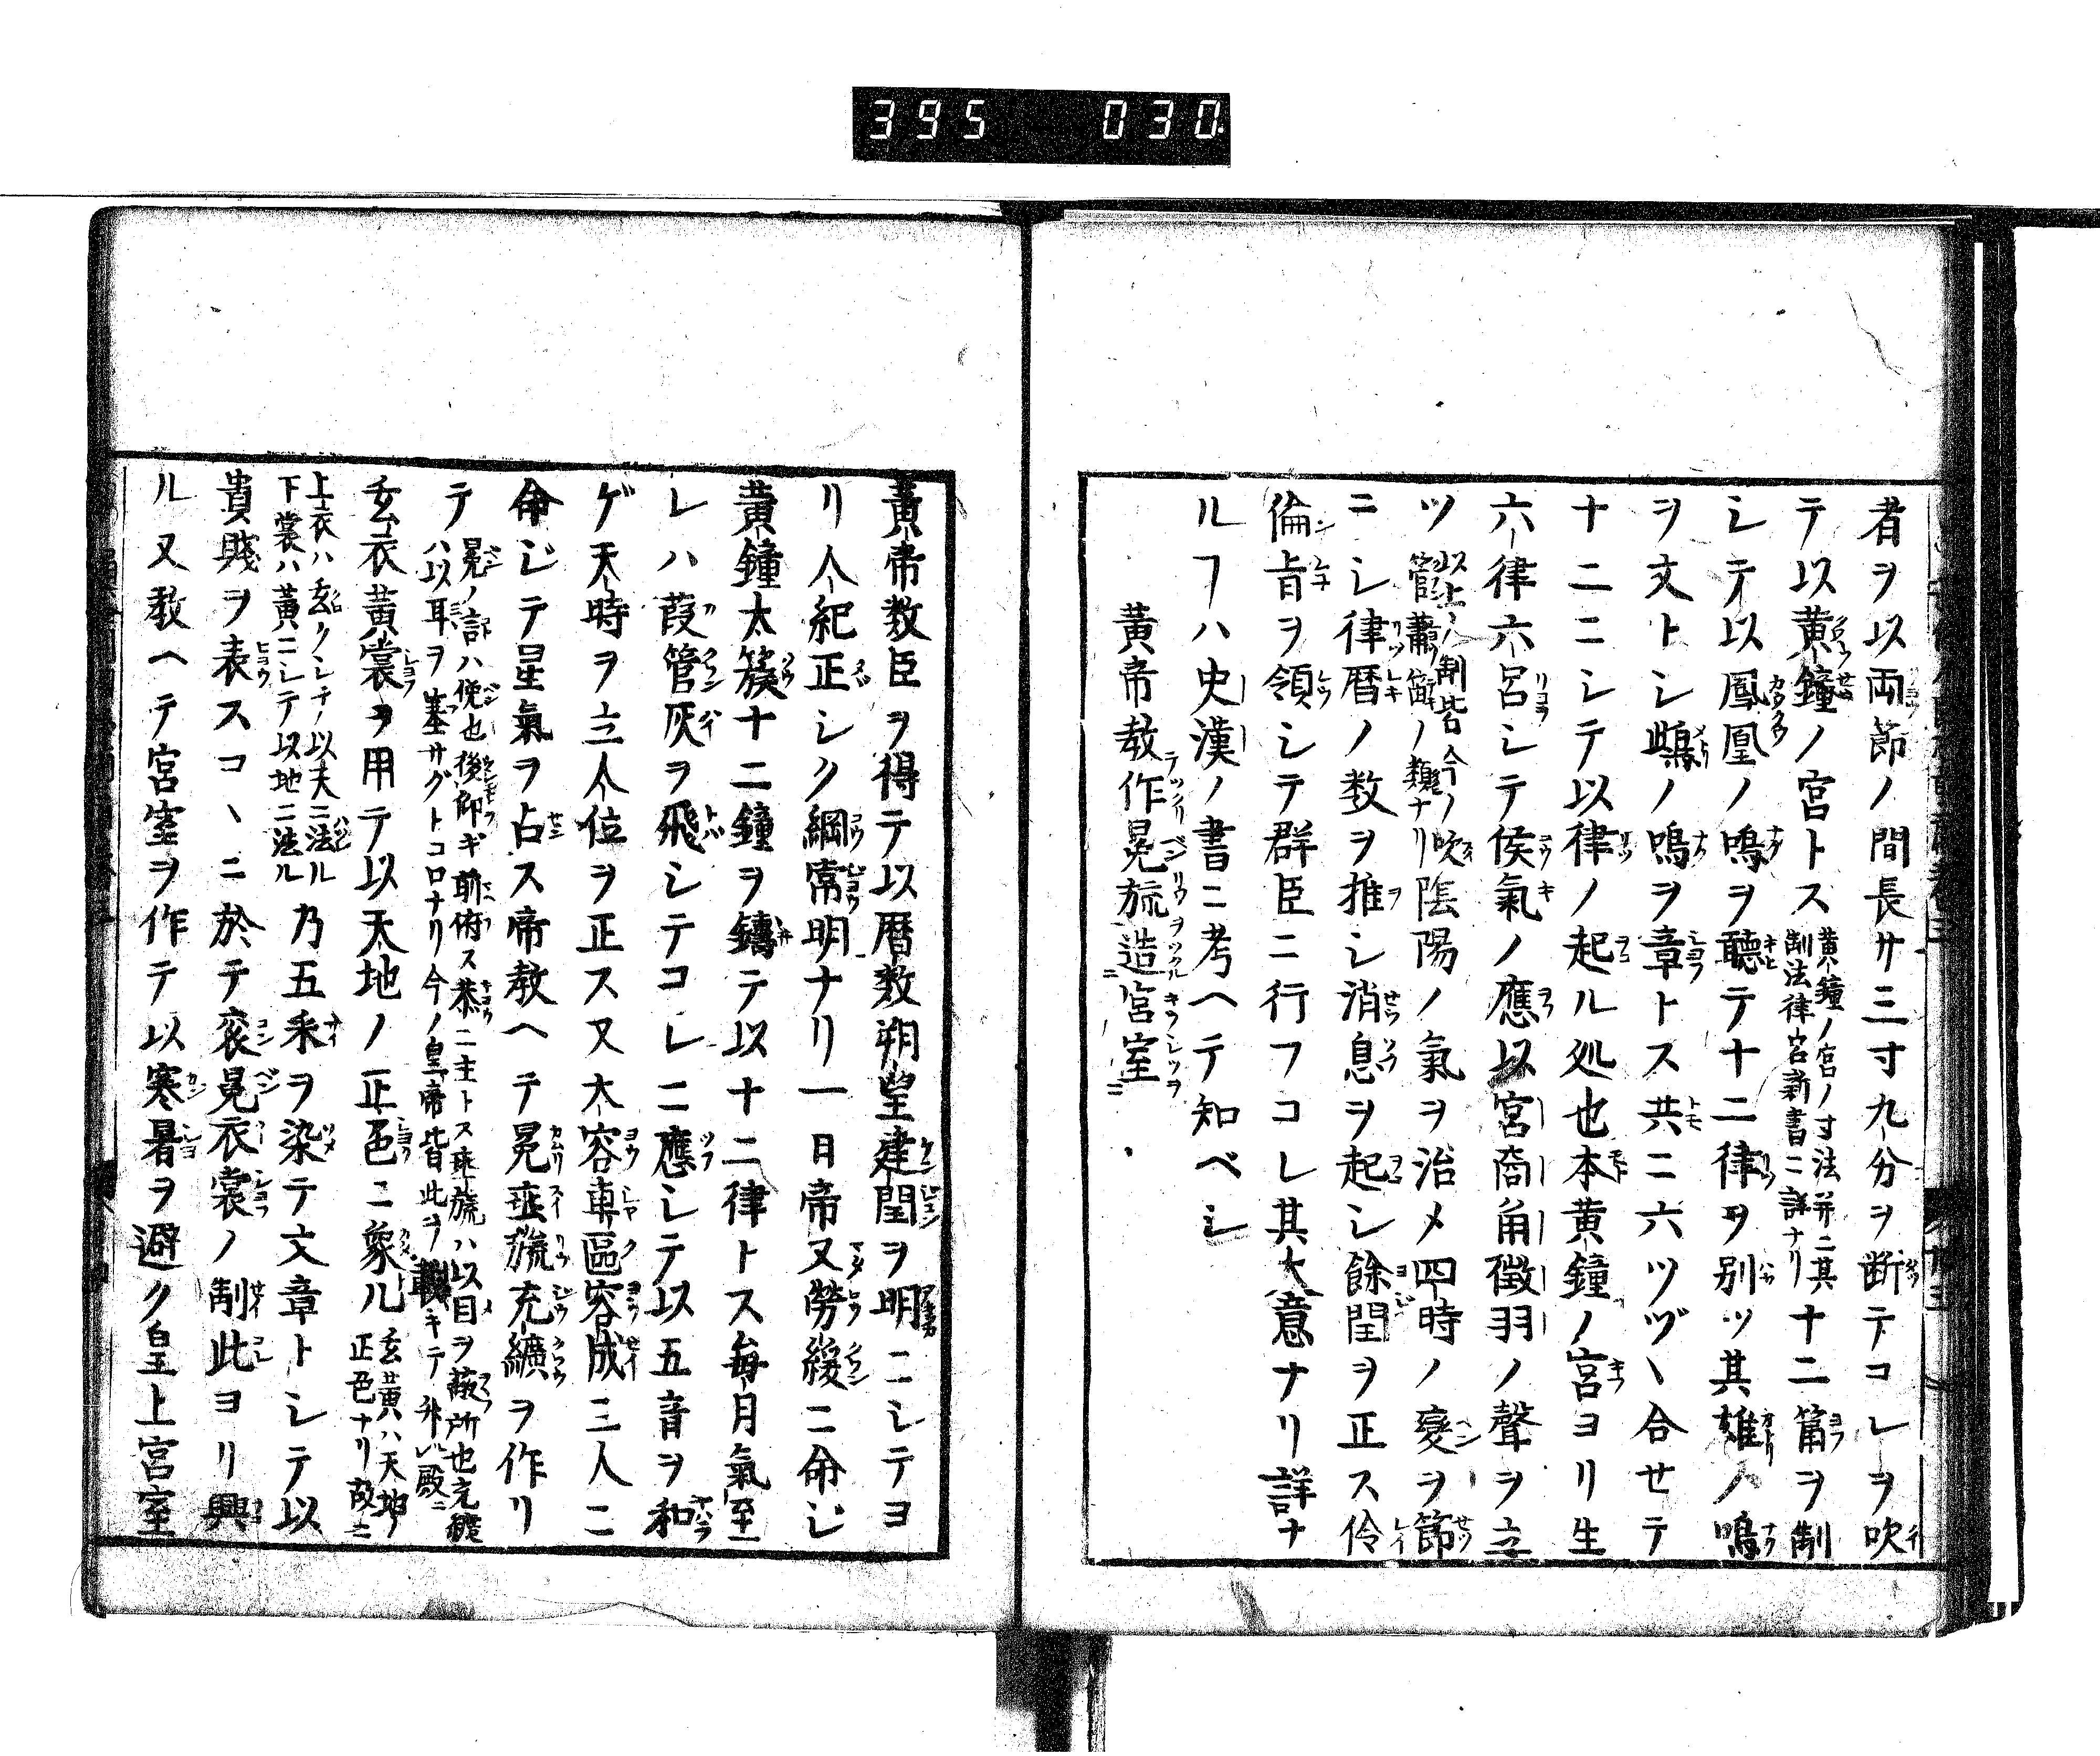 395 030
者ヲ以両節ノ間長サ三寸九分ヲ断テコレヲ吹
テ以黄鐘ノ宮トス黄鐘ノ宮ノ寸法并ニ其制法律呂新書ニ詳ナリ十二筩ヲ制
シテ以鳳凰ノ鳴ヲ聴テ十二律ヲ別ツ其雄ノ鳴
ヲ文トシ鴜ノ鳴ヲ章トス共ニ六ツヅヽ合せテ
十二ニシテ以律ノ起ル処也本黄鐘ノ宮ヨリ生
六律六呂シテ候氣ノ應以宮商角徴羽ノ聲ヲ立
ツ以上ノ制皆今ノ吹管簫笛ノ類ナリ陰陽ノ氣ヲ治メ四時ノ變ヲ節
ニシ律暦ノ数ヲ推シ消息ヲ起シ餘閏ヲ正ス伶
倫旨ヲ領シテ群臣ニ行フコレ其大意ナリ詳ナ
ルフハ史漢ノ書ニ考ヘテ知ベシ
黄帝教作冕旒造宮室
黄帝数臣ヲ得テ以暦数朔望建閏ヲ明ニシテヨ
リ人紀正シク綱常明ナリ一日帝又勞緩ニ命じ
黄鐘太簇十二鐘ヲ鑄テ以十二律トス毎月氣至
レハ葭管灰ヲ飛シテコレニ應シテ以五音ヲ和
ゲ天時ヲ立人位ヲ正ス又大容車區容成三人ニ
命じテ星氣ヲ占ス帝教ヘテ冕垂旒充纊ヲ作リ
テ冕ノ訓ハ俛也後仰ギ前俯ス恭ニ主トス垂旒ハ以目ヲ蔽所也充纊ハ以耳ヲ塞サグトコロナリ今ノ皇帝皆此ヲ戴キテ升ル殿ニ
玄衣黄裳ヲ用テ以天地ノ正色ニ象ル玄黄ハ天地ノ正色ナリ故ニ
上衣ハ玄クシテ以天ニ法ル下裳ハ黄ニシテ以地ニ法ル乃五采ヲ染テ文章トシテ以
貴賤ヲ表スコヽニ於テ衮冕衣裳ノ制此ヨリ興
ル又教ヘテ宮室ヲ作テ以寒暑ヲ避ク皇上宮室